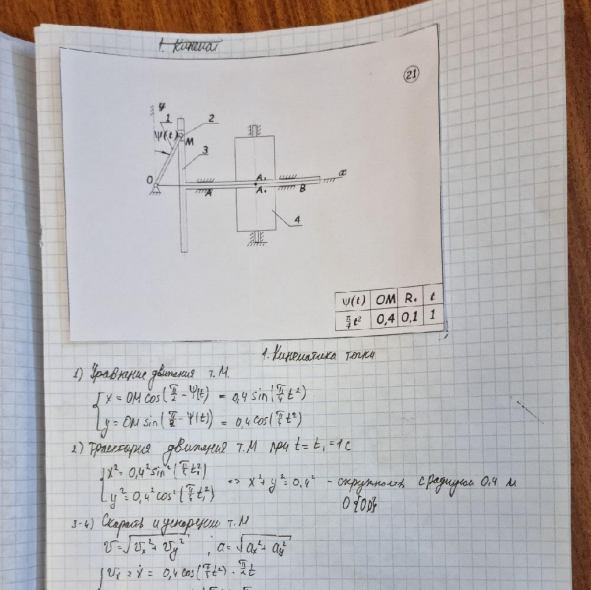 1. Кинемат
21
y
1
2
ψ(t)
M
3
O
A
A₁
A₁
B
x
4
ψ(t) OM R. t
π/4 t² 0,4 0,1 1
1. Кинематика точки
1) Уравнение движения т. M
{x = OM cos(π/2 - ψ(t)) = 0,4 sin(π/4 t²)
{y = OM sin(π/2 - ψ(t)) = 0,4 cos(π/4 t²)
2) Траектория движения т. M при t = t₁ = 1c
{x² = 0,4² sin²(π/4 t₁²)
{y² = 0,4² cos²(π/4 t₁²) <=> x² + y² = 0,4² - окружность с радиусом 0,4 м
3-4) Скорость и ускорение т. M
v = √(vₓ² + v_y²) ; a = √(aₓ² + a_y²)
{vₓ = ẋ = 0,4 cos(π/4 t²) · π/2 t